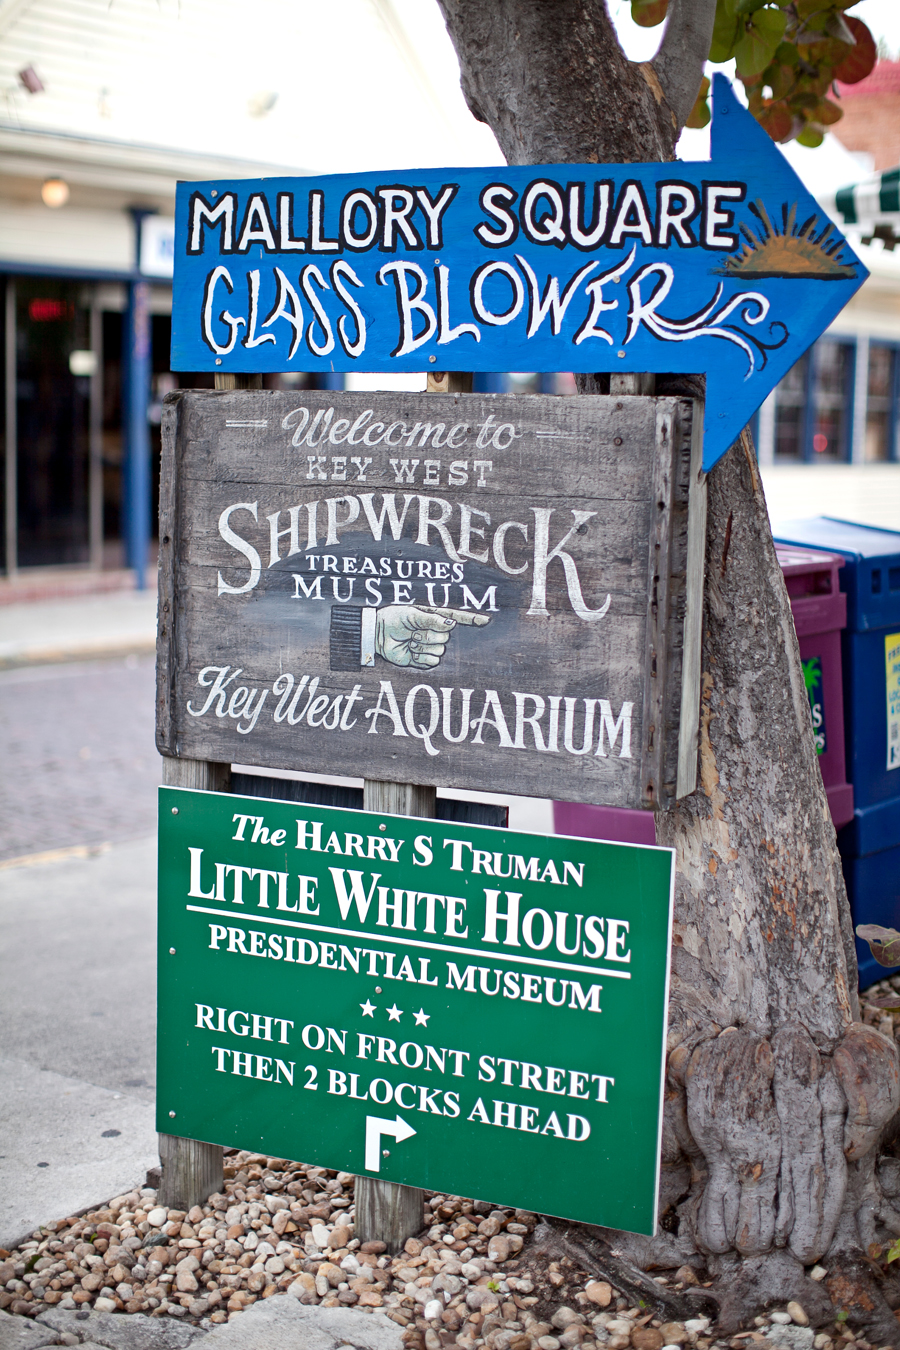 MALLORY SQUARE
GLASS BLOWER
Welcome to
KEY WEST
SHIPWRECK
TREASURES
MUSEUM
Key West AQUARIUM
The HARRY S TRUMAN
LITTLE WHITE HOUSE
PRESIDENTIAL MUSEUM
RIGHT ON FRONT STREET
THEN 2 BLOCKS AHEAD